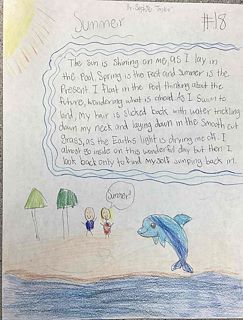 By: Sophie Taylor
Summer
#18
The sun is shining on me, as I lay in
the Pool. Spring is the Past and Summer is the
Present. I float in the Pool thinking about the
future, wondering what is ahead. As I swim to
land, my hair is slicked back with water trickling
down my neck and laying down in the smooth cut
grass, as the Earths light is drying me off. I
almost go inside on this wonderful day but then I
look back only to find myself jumping back in.
Summer!